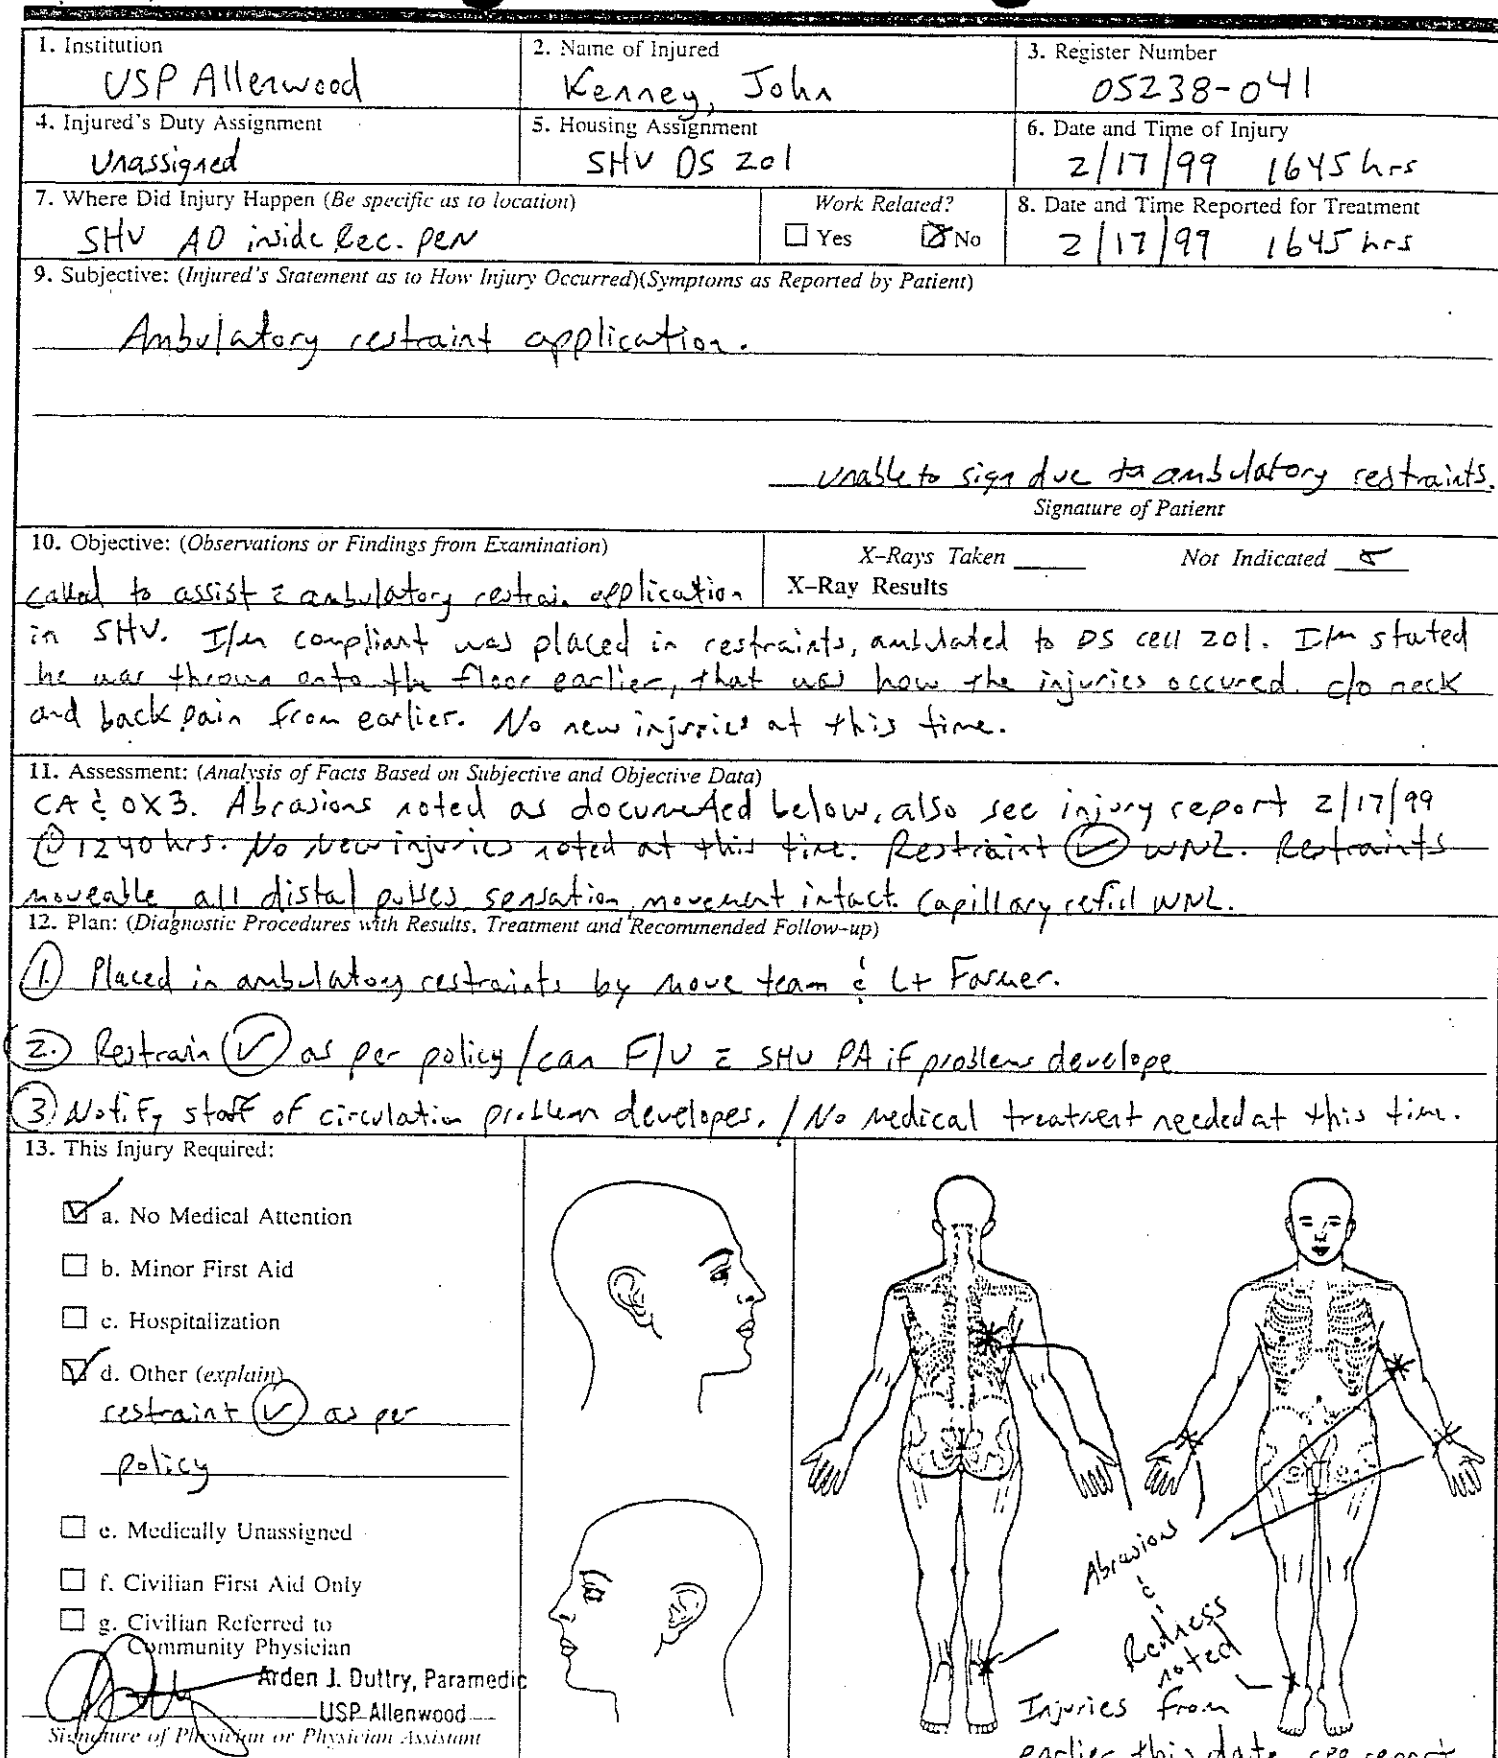 1. Institution
USP Allenwood
2. Name of Injured
Kenney, John
3. Register Number
05238-041
4. Injured's Duty Assignment
Unassigned
5. Housing Assignment
SHU DS 201
6. Date and Time of Injury
2/17/99 1645 hrs
7. Where Did Injury Happen (Be specific as to location)
SHU AD inside Rec. pen
Work Related?
Yes No
8. Date and Time Reported for Treatment
2/17/99 1645 hrs
9. Subjective: (Injured's Statement as to How Injury Occurred)(Symptoms as Reported by Patient)
Ambulatory restraint application.
unable to sign due to ambulatory restraints.
Signature of Patient
10. Objective: (Observations or Findings from Examination)
X-Rays Taken Not Indicated
X-Ray Results
called to assist c ambulatory restrain application
in SHU. I/m compliant was placed in restraints, ambulated to DS cell 201. I/m stated
he was thrown onto the floor earlier, that was how the injuries occured. c/o neck
and back pain from earlier. No new injuries at this time.
11. Assessment: (Analysis of Facts Based on Subjective and Objective Data)
CA & OX3. Abrasions noted as documented below, also see injury report 2/17/99
@ 1240 hrs. No new injuries noted at this time. Restraint ✓ WNL. Restraints
moveable, all distal pulses, sensation, movement intact. Capillary refill WNL.
12. Plan: (Diagnostic Procedures with Results, Treatment and Recommended Follow-up)
1. Placed in ambulatory restraints by move team & Lt Farmer.
2. Restrain ✓ as per policy / can F/U c SHU PA if problems develope
3. Notify staff of circulation problem developes. / No medical treatment needed at this time.
13. This Injury Required:
a. No Medical Attention
b. Minor First Aid
c. Hospitalization
d. Other (explain)
restraint ✓ as per
policy
e. Medically Unassigned
f. Civilian First Aid Only
g. Civilian Referred to
Community Physician
Arden J. Duttry, Paramedic
USP Allenwood
Signature of Physician or Physician Assistant
Abrasions
&
Redness
noted
Injuries from
earlier this date, see report